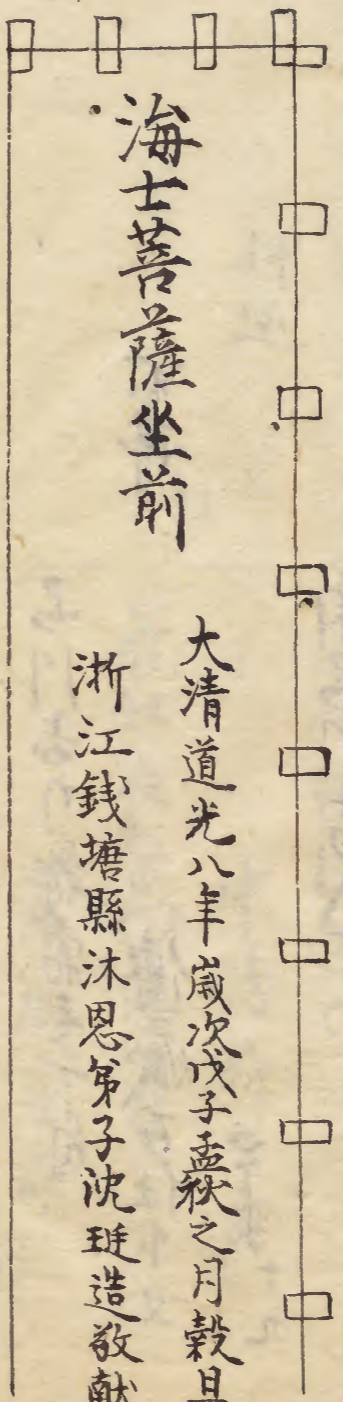 海士菩薩坐前
大清道光八年歳次戊子孟秋之月穀旦
浙江錢塘縣沐恩弟子沈珽造敬献